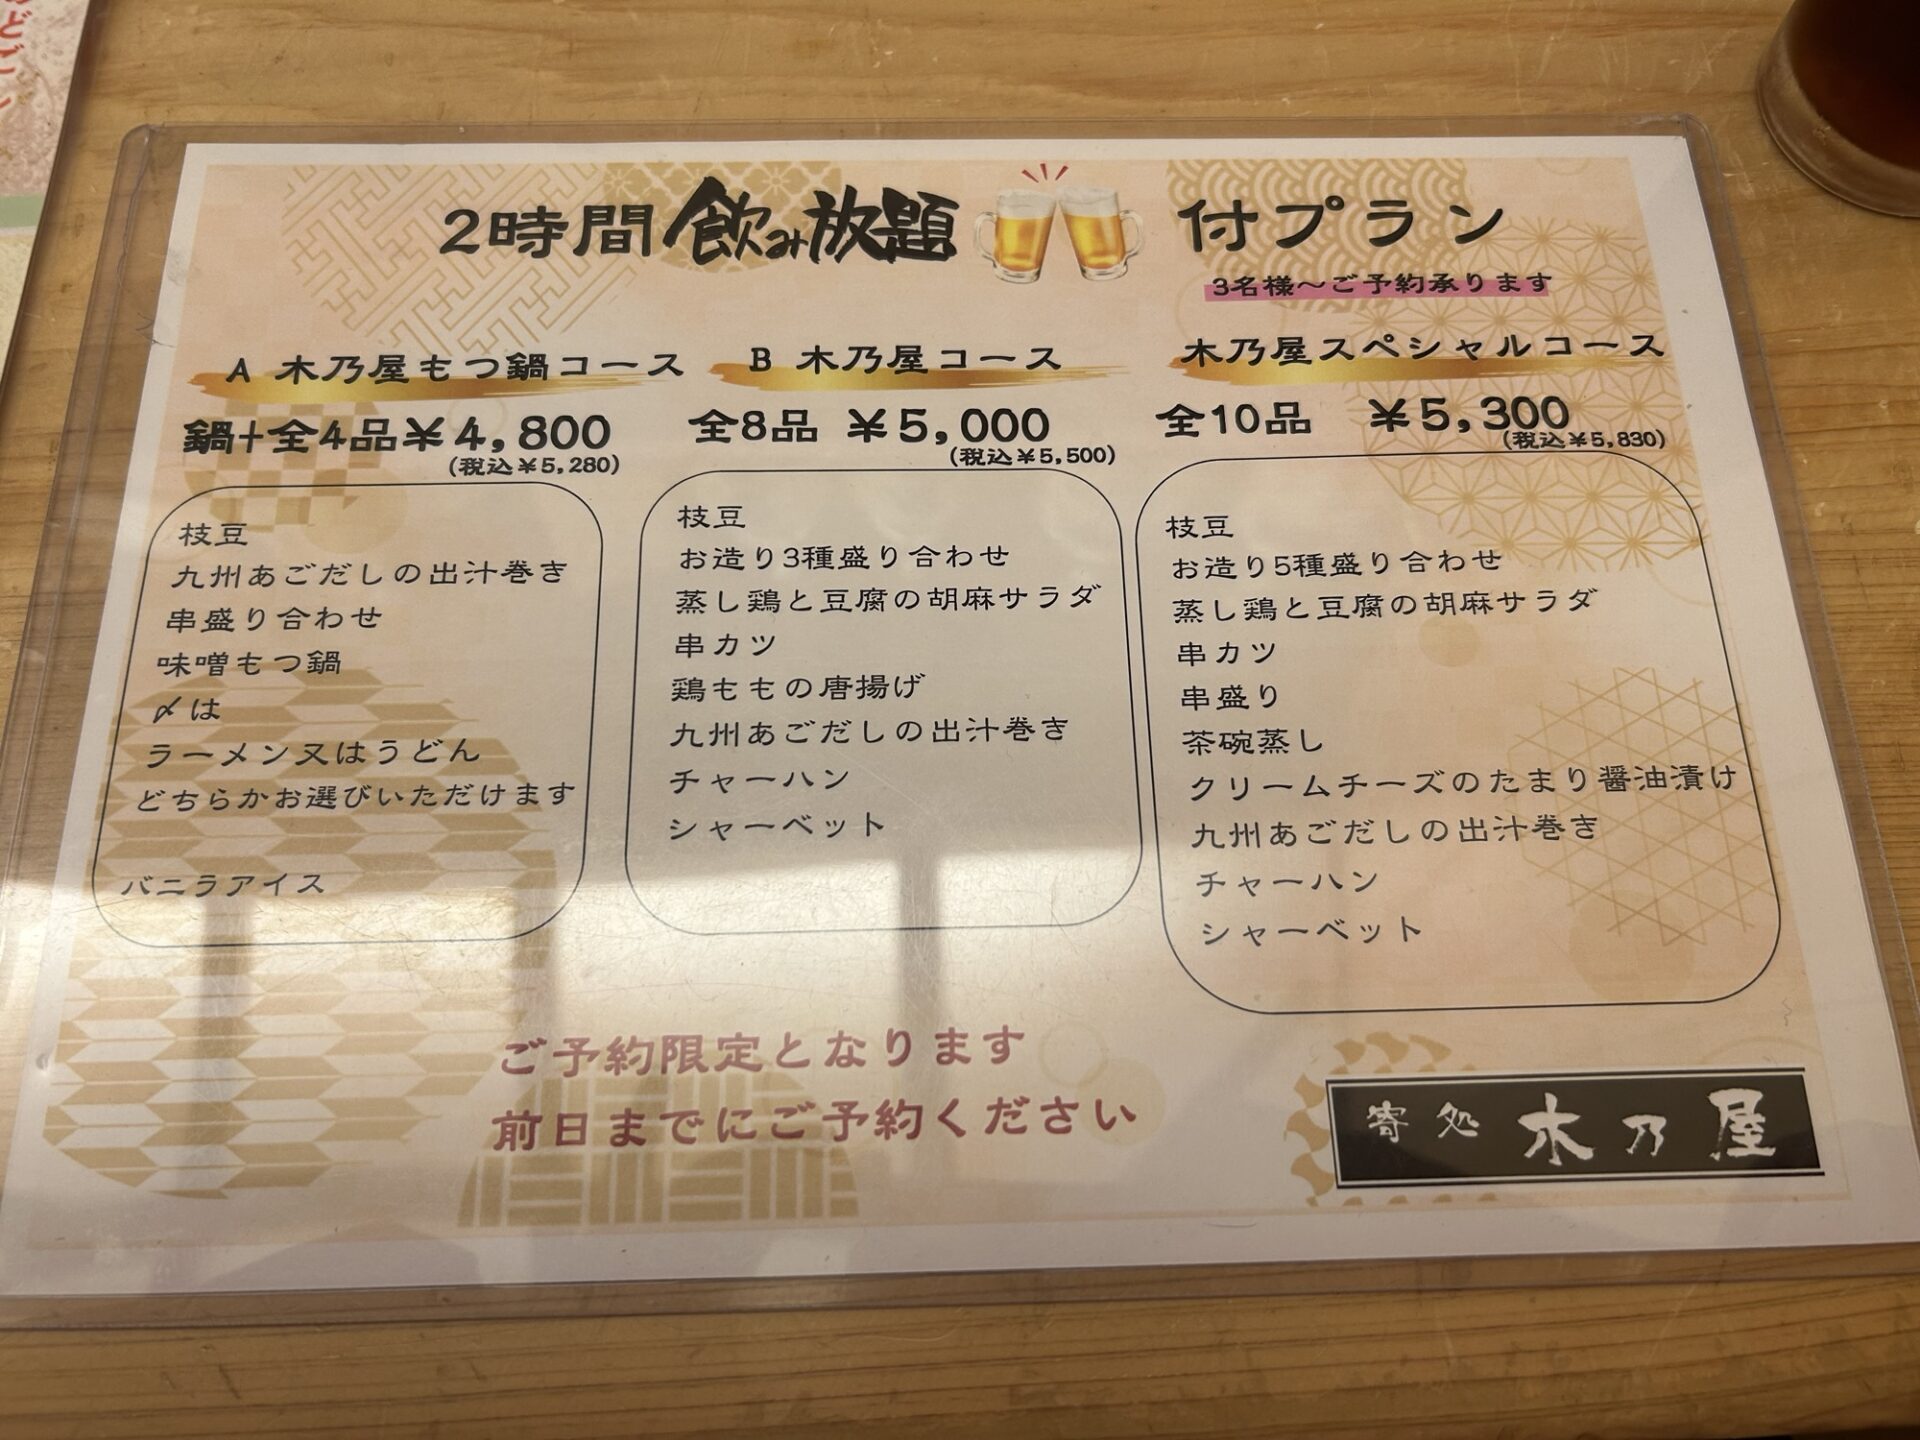 2時間飲み放題付プラン
3名様～ご予約承ります
A 木乃屋もつ鍋コース
鍋+全4品¥4,800
(税込¥5,280)
枝豆
九州あごだしの出汁巻き
串盛り合わせ
味噌もつ鍋
〆は
ラーメン又はうどん
どちらかお選びいただけます
バニラアイス
B 木乃屋コース
全8品 ¥5,000
(税込¥5,500)
枝豆
お造り3種盛り合わせ
蒸し鶏と豆腐の胡麻サラダ
串カツ
鶏ももの唐揚げ
九州あごだしの出汁巻き
チャーハン
シャーベット
木乃屋スペシャルコース
全10品 ¥5,300
(税込¥5,830)
枝豆
お造り5種盛り合わせ
蒸し鶏と豆腐の胡麻サラダ
串カツ
串盛り
茶碗蒸し
クリームチーズのたまり醤油漬け
九州あごだしの出汁巻き
チャーハン
シャーベット
ご予約限定となります
前日までにご予約ください
寄処 木乃屋